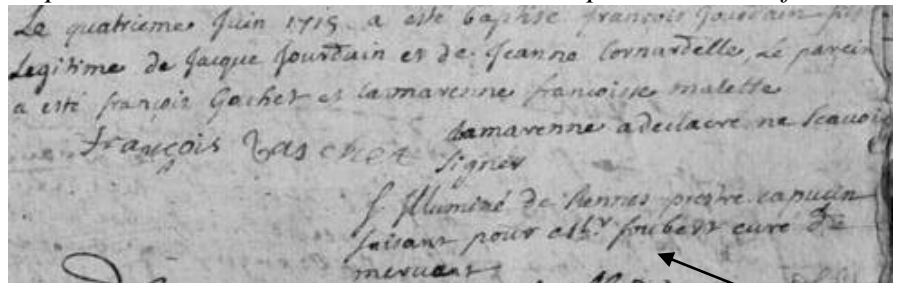 Le quatrieme Juin 1715 a esté baptisé françois Jourdain fils
Legitime de Jacque Jourdain et de Jeanne Cornardelle, Le parein
a esté françois Gachet et la marenne francoisse malette
la marenne a declacre ne Scavoir
françois Gaschet
Signer
f Illuminé de Rennes prestre capucin
faisant pour Mr. foubert curé de
mervant